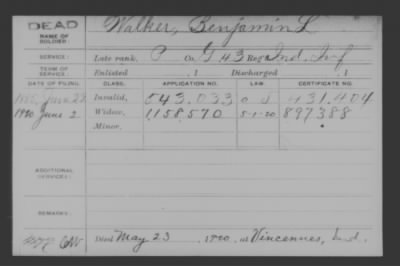 DEAD
NAME OF SOLDIER:
Walker, Benjamin L
SERVICE:
Late rank, P Co. G 43 Reg't Ind. Inf
TERM OF SERVICE:
Enlisted , 1 Discharged , 1
DATE OF FILING. CLASS. APPLICATION NO. LAW. CERTIFICATE NO.
June Invalid, 543.033 431.404
1920 June 2 Widow, 1,158,570 5-1-20 897388
Minor,
ADDITIONAL SERVICES:
REMARKS:
Died May 23 1920, at Vincennes, Ind.